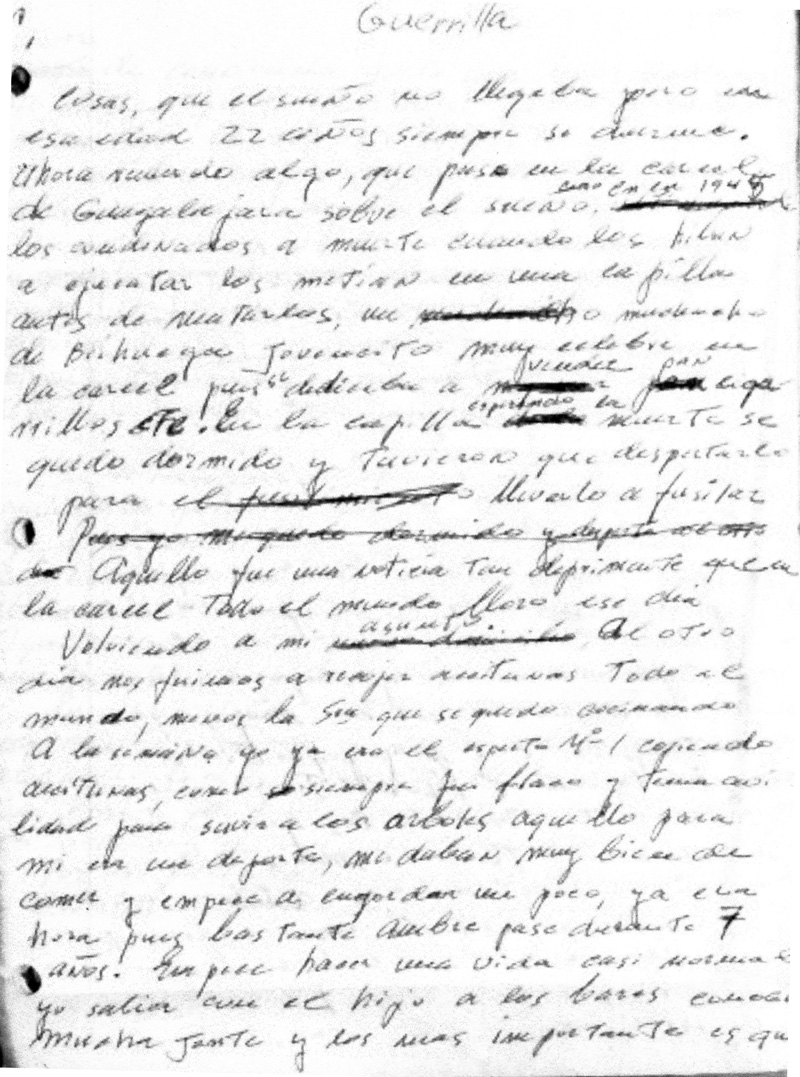 Guerrilla
Cosas, que el sueño no llegaba pero en
esa edad 22 años siempre se duerme.
Ahora recuerdo algo, que paso en la carcel
de Guagalajara sobre el sueño, en 194
los condenados a muerte cuando los hiban
a ejecutar los metian en una capilla
antes de matarlos, un muchacho
de Brihuega Jovencito muy celebre en
la carcel pues se dedicaba a vender pan ciga
rrillos etc. En la capilla esperando la muerte se
quedo dormido y tuvieron que despertarlo
para llevarlo a fusilar
Pues yo me quedo dormido y desperte al otro
dia Aquello fue una noticia tan deprimente que en
la carcel todo el mundo lloro ese dia
Volviendo a mi asunto, Al otro
dia nos fuimos a recojer aceitunas todo el
mundo, menos la Sra que se quedo cocinando
A la semana yo ya era el esperto Nº 1 cojiendo
aceitunas, como siempre fui flaco y tenia avi
lidad para suvir a los arboles aquello para
mi era un deporte, me daban muy bien de
comer y empece a engordar un poco, ya era
hora pues bastante ambre pase durante 7
años. Empece hacer una vida casi normal
yo salia con el hijo a los bares conoci
mucha jente y los mas importante es qu